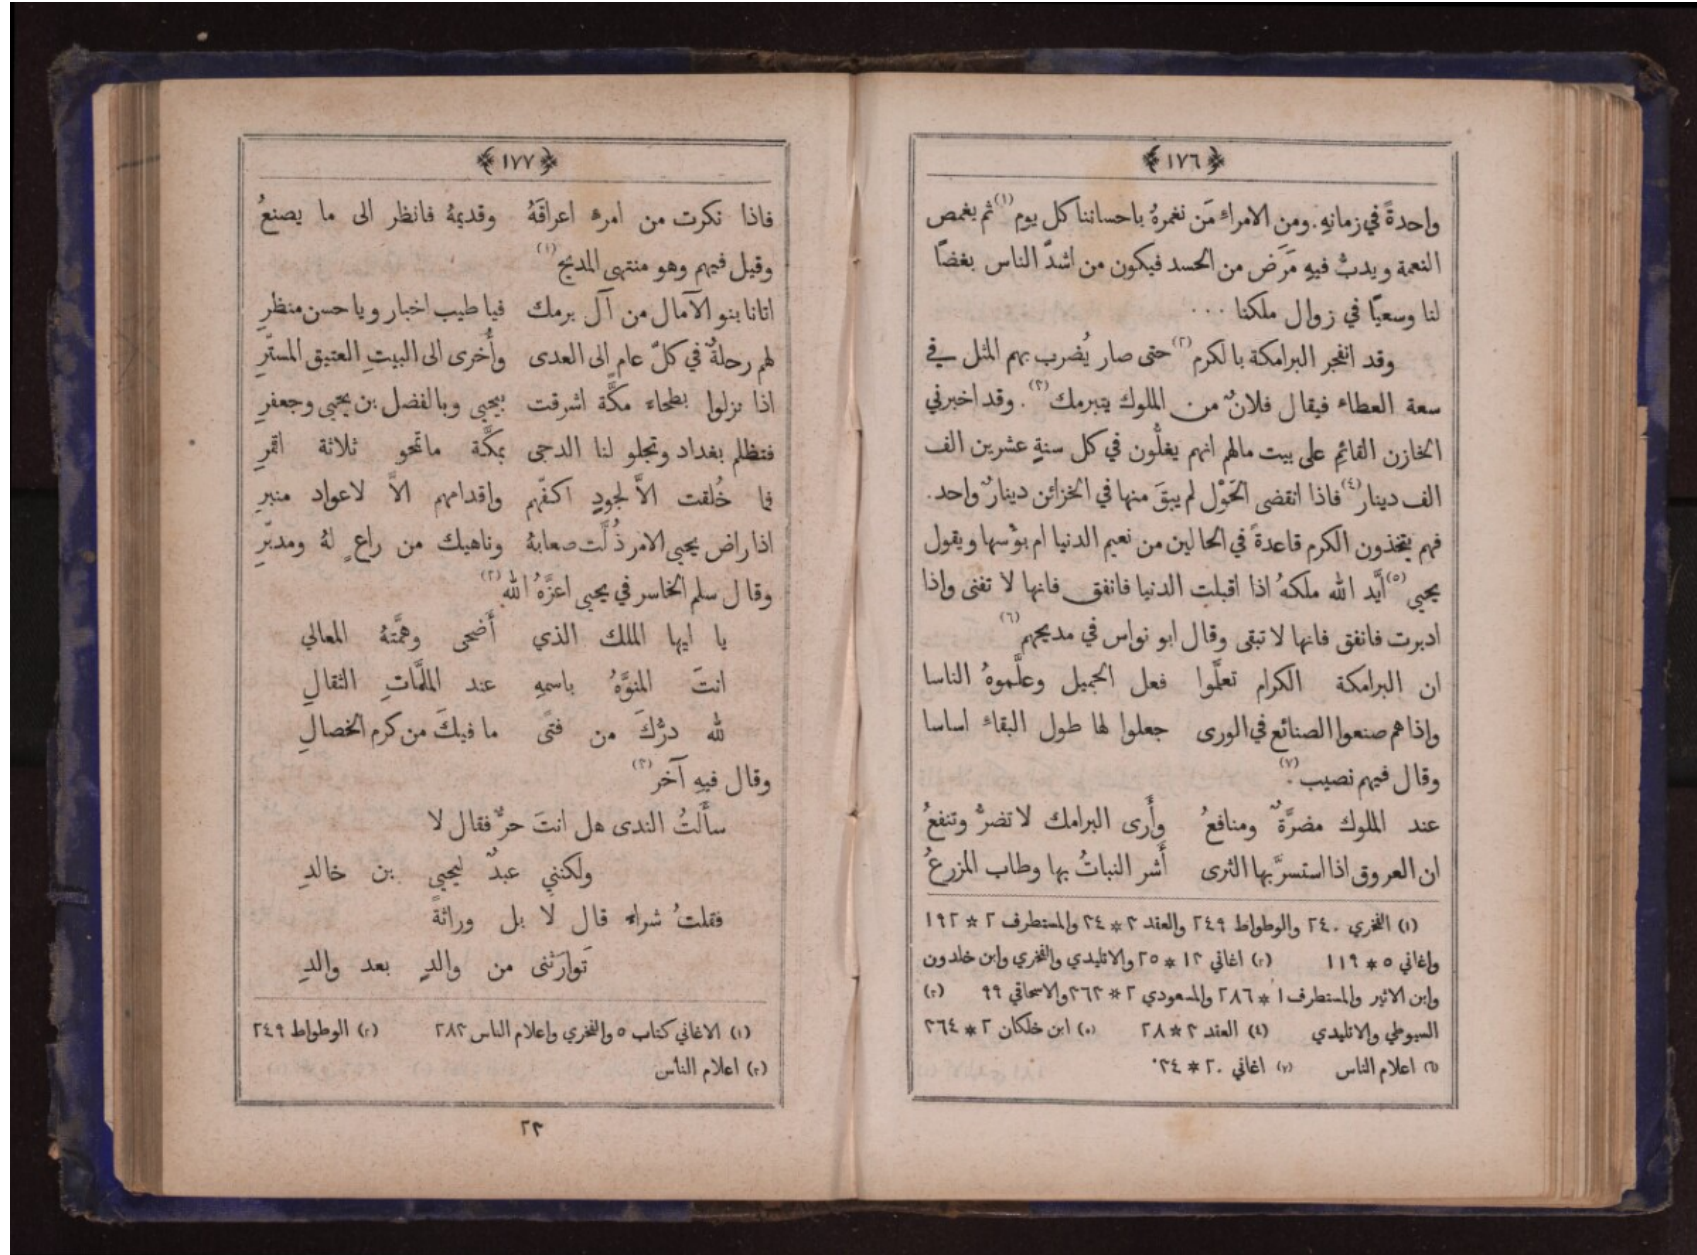 ﴿١٧٦﴾
واحدةً في زمانهِ. ومن الامراء مَن نغمرهُ باحساننا كل يوم (١) ثم يغمص
النعمة ويدبُّ فيهِ مَرَض من الحسد فيكون من اشدّ الناس بغضًا
لنا وسعيًا في زوال ملكنا ...
وقد انفجر البرامكة بالكرم (٢) حتى صار يُضرب بهم المثل في
سعة العطاء فيقال فلانٌ من الملوك يتبرمك (٣). وقد اخبرني
الخازن القائم على بيت مالهم انهم يغلُّون في كل سنةٍ عشرين الف
الف دينار (٤) فاذا انقضى الحَوْل لم يبقَ منها في الخزائن دينارٌ واحد.
فهم يتخذون الكرم قاعدةً في الحالين من نعيم الدنيا ام بؤسها ويقول
يحيي (٥) أيَّد الله ملكهُ اذا اقبلت الدنيا فانفق فانها لا تفنى واذا
ادبرت فانفق فانها لا تبقى وقال ابو نواس في مديحهم (٦)
ان البرامكة الكرام تعلَّموا فعل الجميل وعلَّموهُ الناسا
واذا هم صنعوا الصنائع في الورى جعلوا لها طول البقاء اساسا
وقال فيهم نصيب (٧).
عند الملوك مضرَّةٌ ومنافعُ وأَرى البرامك لا تضرُّ وتنفعُ
ان العروق اذا استسرَّ بها الثرى أَشر النباتُ بها وطاب المزرعُ
(١) الفخري ٢٤٠ والوطواط ٢٤٩ والعقد ٣ * ٣٤ والمستطرف ٢ * ١٩٢
واغاني ٥ * ١١٩ (٢) اغاني ١٣ * ٣٥ والاتليدي والفخري وابن خلدون
وابن الاثير والمستطرف ١ * ٢٨٦ والمسعودي ٢ * ٣٦٣ والاسحاقي ٩٩ (٣)
السيوطي والاتليدي (٤) العقد ٣ * ٢٨ (٥) ابن خلكان ٢ * ٣٦٤
(٦) اعلام الناس (٧) اغاني ٢٠ * ٣٤
﴿١٧٧﴾
فاذا نكرت من امرء اعراقَهُ وقديمهُ فانظر الى ما يصنعُ
وقيل فيهم وهو منتهى المديح (١)
اتانا بنو الآمال من آل برمك فيا طيب اخبار ويا حسن منظرِ
لهم رحلةٌ في كلّ عام الى العدى وأُخرى الى البيتِ العتيق المستَّرِ
اذا نزلوا بطحاء مكَّة اشرقت بيحيي وبالفضل بن يحيى وجعفرِ
فتظلم بغداد وتجلو لنا الدجى بمكَّة ما تمحو ثلاثة اقمرِ
فما خُلقت الاَّ لجودٍ اكفّهم واقدامهم الاَّ لاعواد منبرِ
اذا راض يحيى الامر ذُلَّت صعابهُ وناهيك من راعٍ لهُ ومدبّرِ
وقال سلم الخاسر في يحيى اعزَّهُ الله (٢)
يا ايها الملك الذي أَضحى وهمَّتهُ المعالي
انتَ المنوَّهُ باسمهِ عند الملمَّاتِ الثقالِ
لله درُّكَ من فتًى ما فيكَ من كرم الخصالِ
وقال فيهِ آخر (٣)
سأَلتُ الندى هل انتَ حرٌّ فقال لا
ولكنني عبدٌ ليحيي بن خالدِ
فقلتُ شراء قال لا بل وراثةً
تَوارَثني من والدٍ بعد والدِ
(١) الاغاني كتاب ٥ والفخري واعلام الناس ٢٨٣ (٢) الوطواط ٢٤٩
(٣) اعلام الناس
٢٣